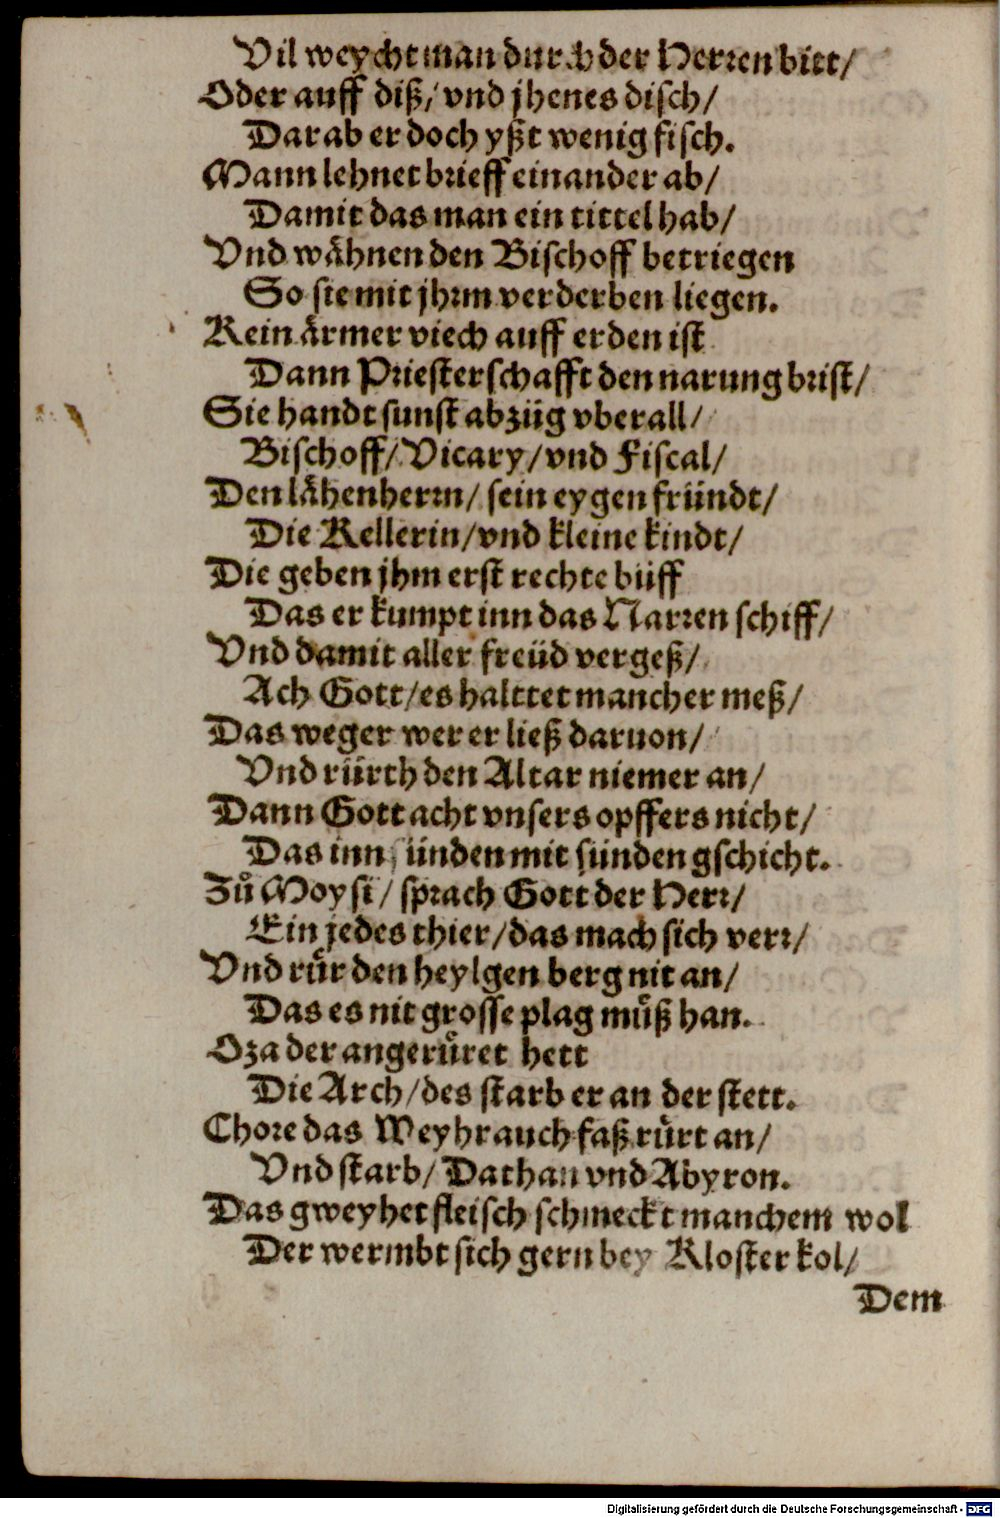 Vil weycht man durch der Herren bitt/
Oder auff diß/ vnd jhenes disch/
Darab er doch yßt wenig fisch.
Mann lehnet brieff einander ab/
Damit das man ein tittel hab/
Vnd wähnen den Bischoff betriegen
So sie mit jhrm verderben liegen.
Kein ärmer viech auff erden ist
Dann Priesterschafft den narung brist/
Sie handt sunst abzüg vberall/
Bischoff/ Vicary/ vnd Fiscal/
Den lähenherrn/ sein eygen fründt/
Die Kellerin/ vnd kleine kindt/
Die geben jhm erst rechte büff
Das er kumpt inn das Narren schiff/
Vnd damit aller freüd vergeß/
Ach Gott/ es halttet mancher meß/
Das weger wer er ließ daruon/
Vnd rürth den Altar niemer an/
Dann Gott acht vnsers opffers nicht/
Das inn sünden mit sünden gschicht.
Zů Moysi/ sprach Gott der Herr/
Ein jedes thier/ das mach sich verr/
Vnd rür den heylgen berg nit an/
Das es nit grosse plag můß han.
Oza der angerüret hett
Die Arch/ des starb er an der stett.
Chore das Weyhrauch faß rürt an/
Vnd starb/ Dathan vnd Abyron.
Das gweyhet fleisch schmeckt manchem wol
Der wermbt sich gern bey Kloster kol/
Dem
Digitalisierung gefördert durch die Deutsche Forschungsgemeinschaft - DFG